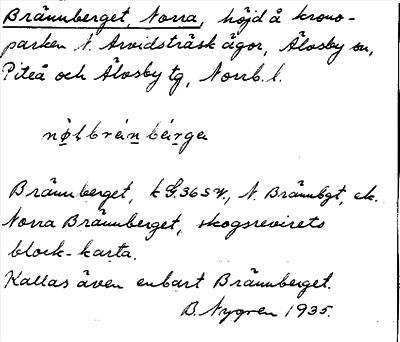 Brännberget, Norra, höjd å krono-
parken N. Arvidsträsk ägor, Älvsby sn,
Piteå och Älvsby tg, Norrb. l.
Brännberget, N. Brännbgt, ek.
Norra Brännberget, skogsrevirets
block-karta.
Kallas även enbart Brännberget.
B. Nygren 1935.